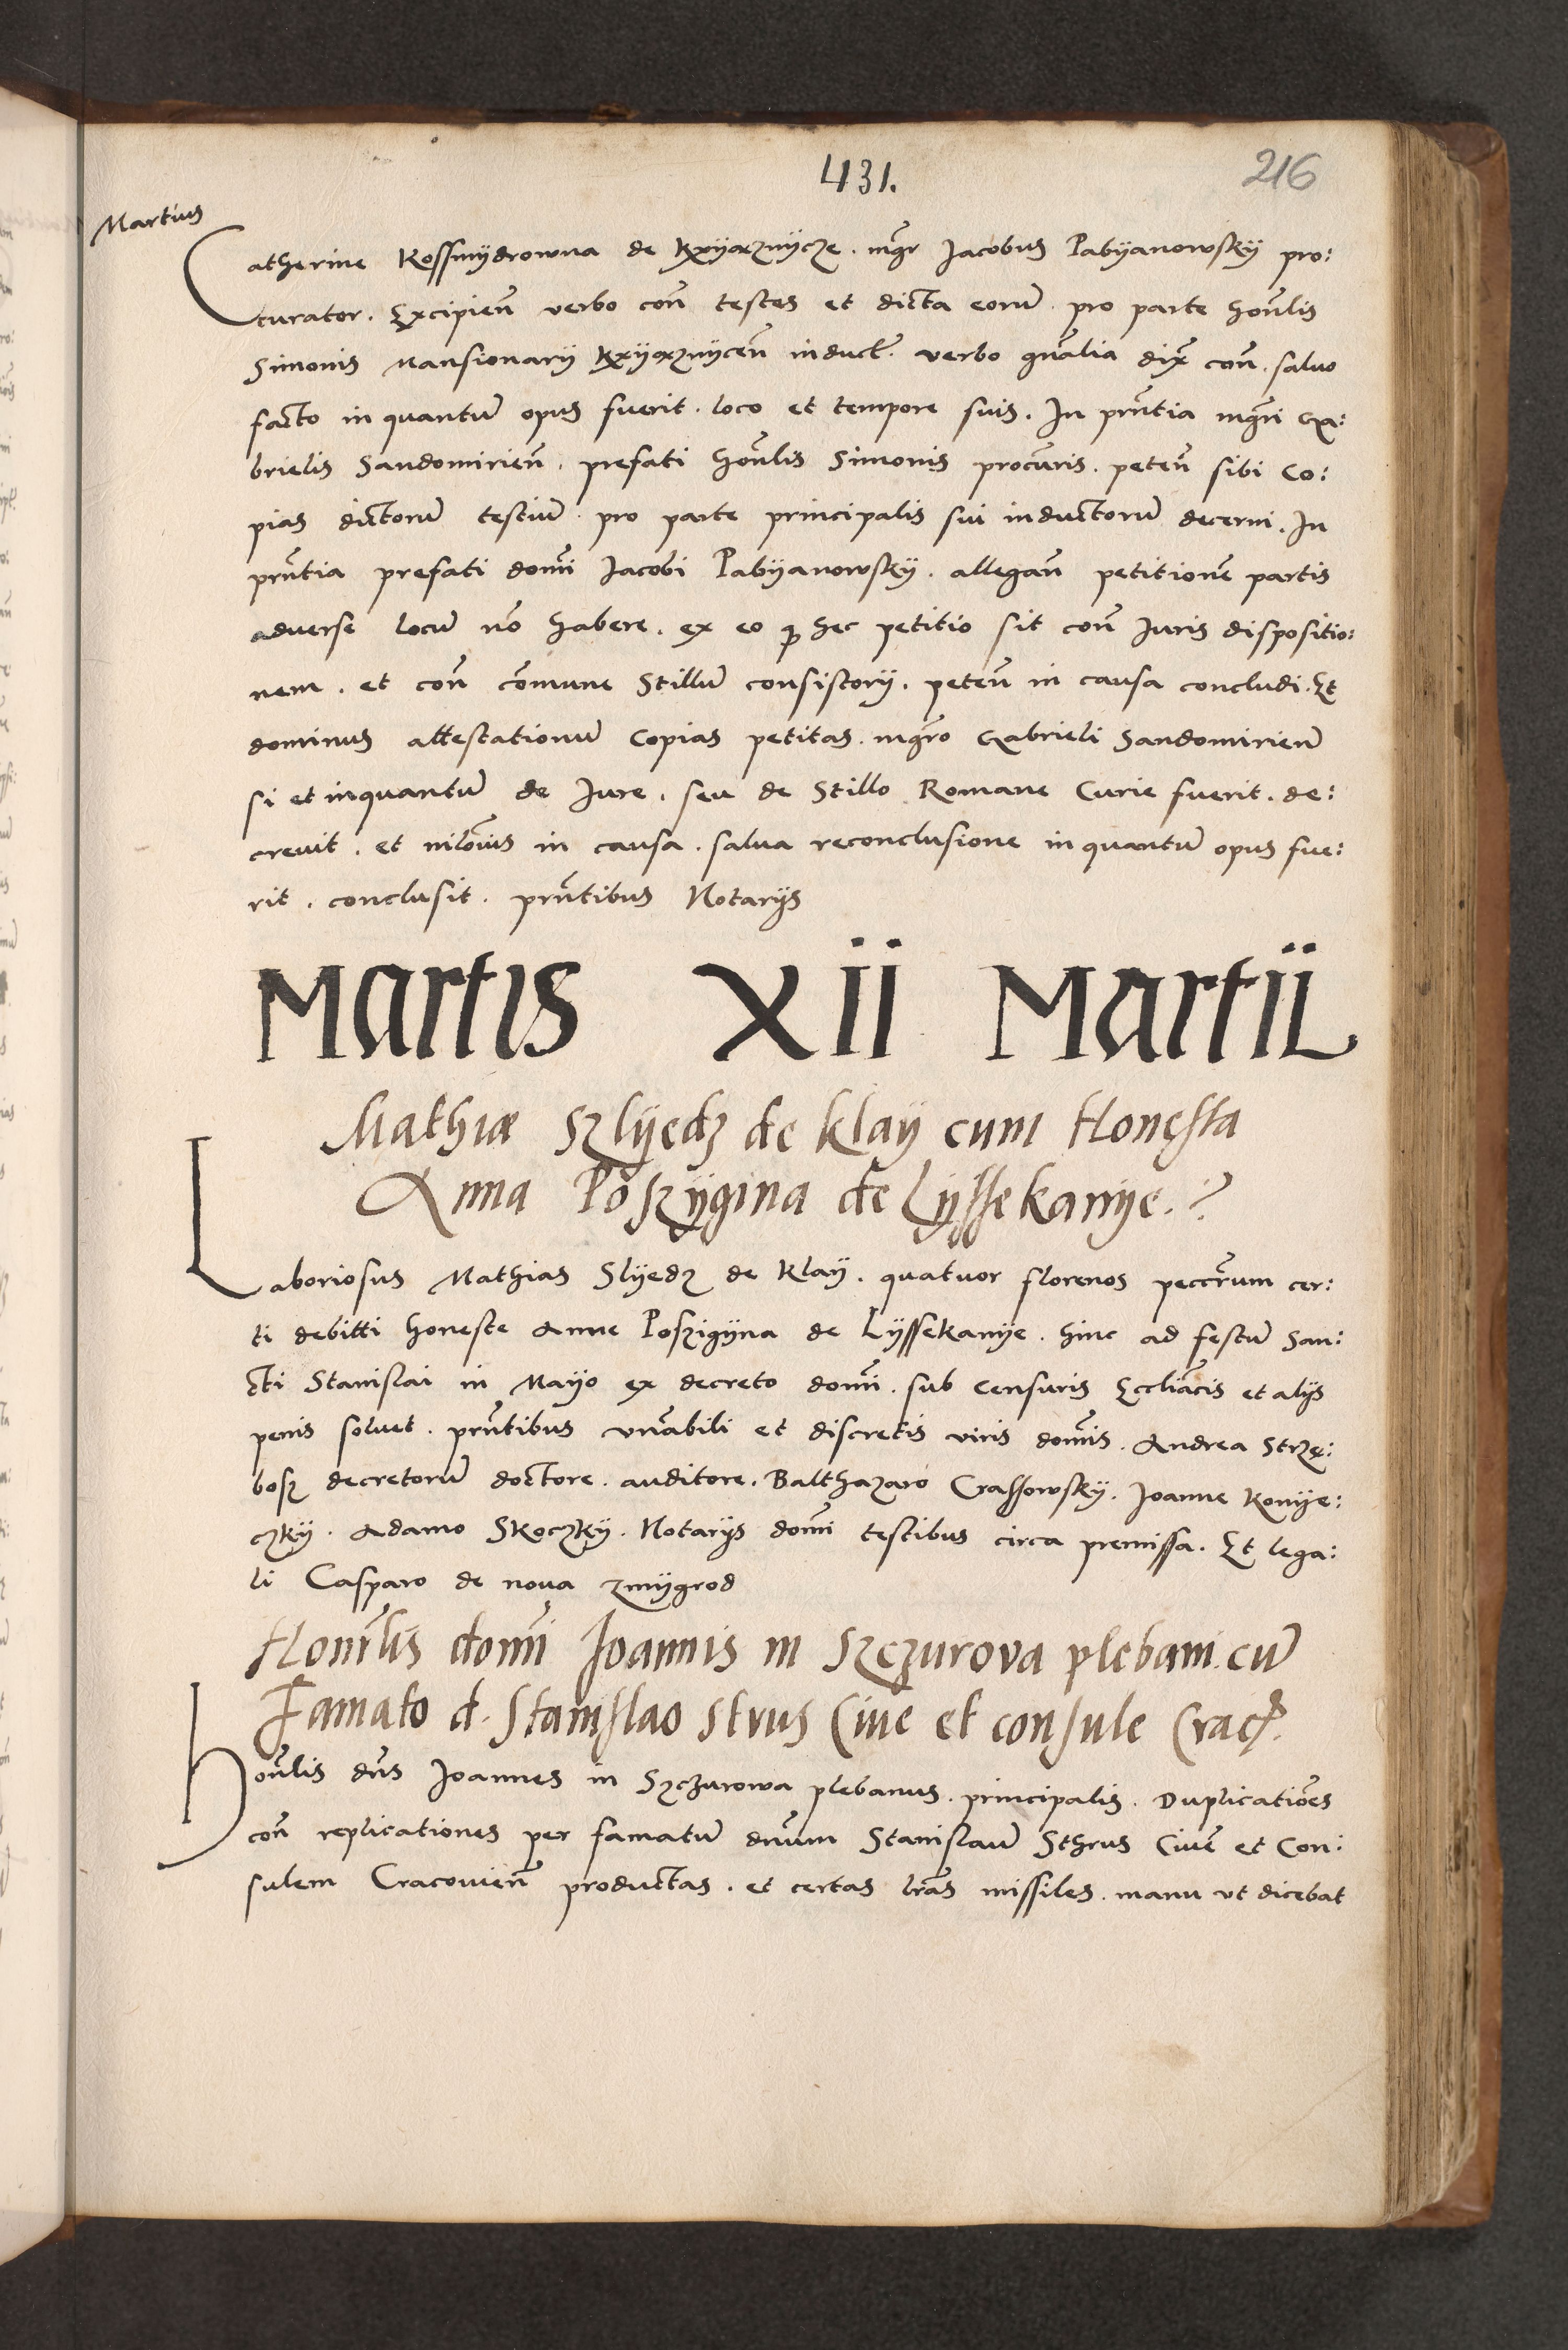 431.
216
Martius
Catherine Kossmÿdrowna de Kxÿąznÿcze . mḡr Jacobus Pabÿanowskÿ pro:
curator . Excipień verbo coñ testes et dicta eorū pro parte hoñlis
Simonis Mansionarÿ Kxÿąznÿceñ induct . verbo gñalia dix̄ coñ . saluo
facto in quantū opus fuerit . loco et tempore suis . In prñtia mḡri Ga:
brielis Sandomirieñ . prefati hoñlis Simonis procūris . peteñ sibi Co:
pias dictorū testiū pro parte principalis sui inductorū decerni . In
prñtia prefati domī Jacobi Pabÿanowskÿ . allegañ petitionē partis
adverse locū nō habere . ex eo ꝙ hec petitio sit coñ Juris dispositio:
nem . et coñ cōmune Stillū consistorÿ . peteñ in causa concludi . Et
dominus attestationū Copias petitas . mḡro Gabrieli Sandomirieñ
si et inquantū de Jure . seu de Stillo Romane Curie fuerit . de:
crevit . et nilōīus in causa . salva reconclusione in quantū opus fue:
rit . conclusit . prñtibus Notarÿs
Martis Xii Martii
Mathiæ Szlÿedz de Klaÿ cum Honesta
Anna Poszÿgina de Lÿssekanÿe .
Laboriosus Mathias Slÿedz de Klaÿ . quatuor florenos peccr̄um cer:
ti debitti honeste Anne Poszigÿna de Lÿssekanÿe . hinc ad festū San:
cti Stanislai in Mayo ex decreto domī . sub Censuris Eccliācis et alÿs
penis soluet . prñtibus vnābili et discretis viris domīs . Andrea Strzę:
bosz decretorū doctore . auditore . Balthazaro Crassowskÿ . Joanne Konÿe:
czkÿ . Adamo Skoczkÿ . Notarÿs domī testibus circa premissa . Et lega:
li Casparo de nova zmÿgrod
Honr̄lis domī Joannis in Szczurova plebani . cū
Famato d . Stanislao Strus Ciue et consule Crac̄ .
Hoñlis dñs Joannes in Szczurowa plebanus . principalis . Duplicatiōēs
coñ replicationes per famatū dnūm Stanislaū Sthrus Ciuē et Con:
sulem Cracovieñ productas . et certas lr̄as missiles . manu vt dicebat